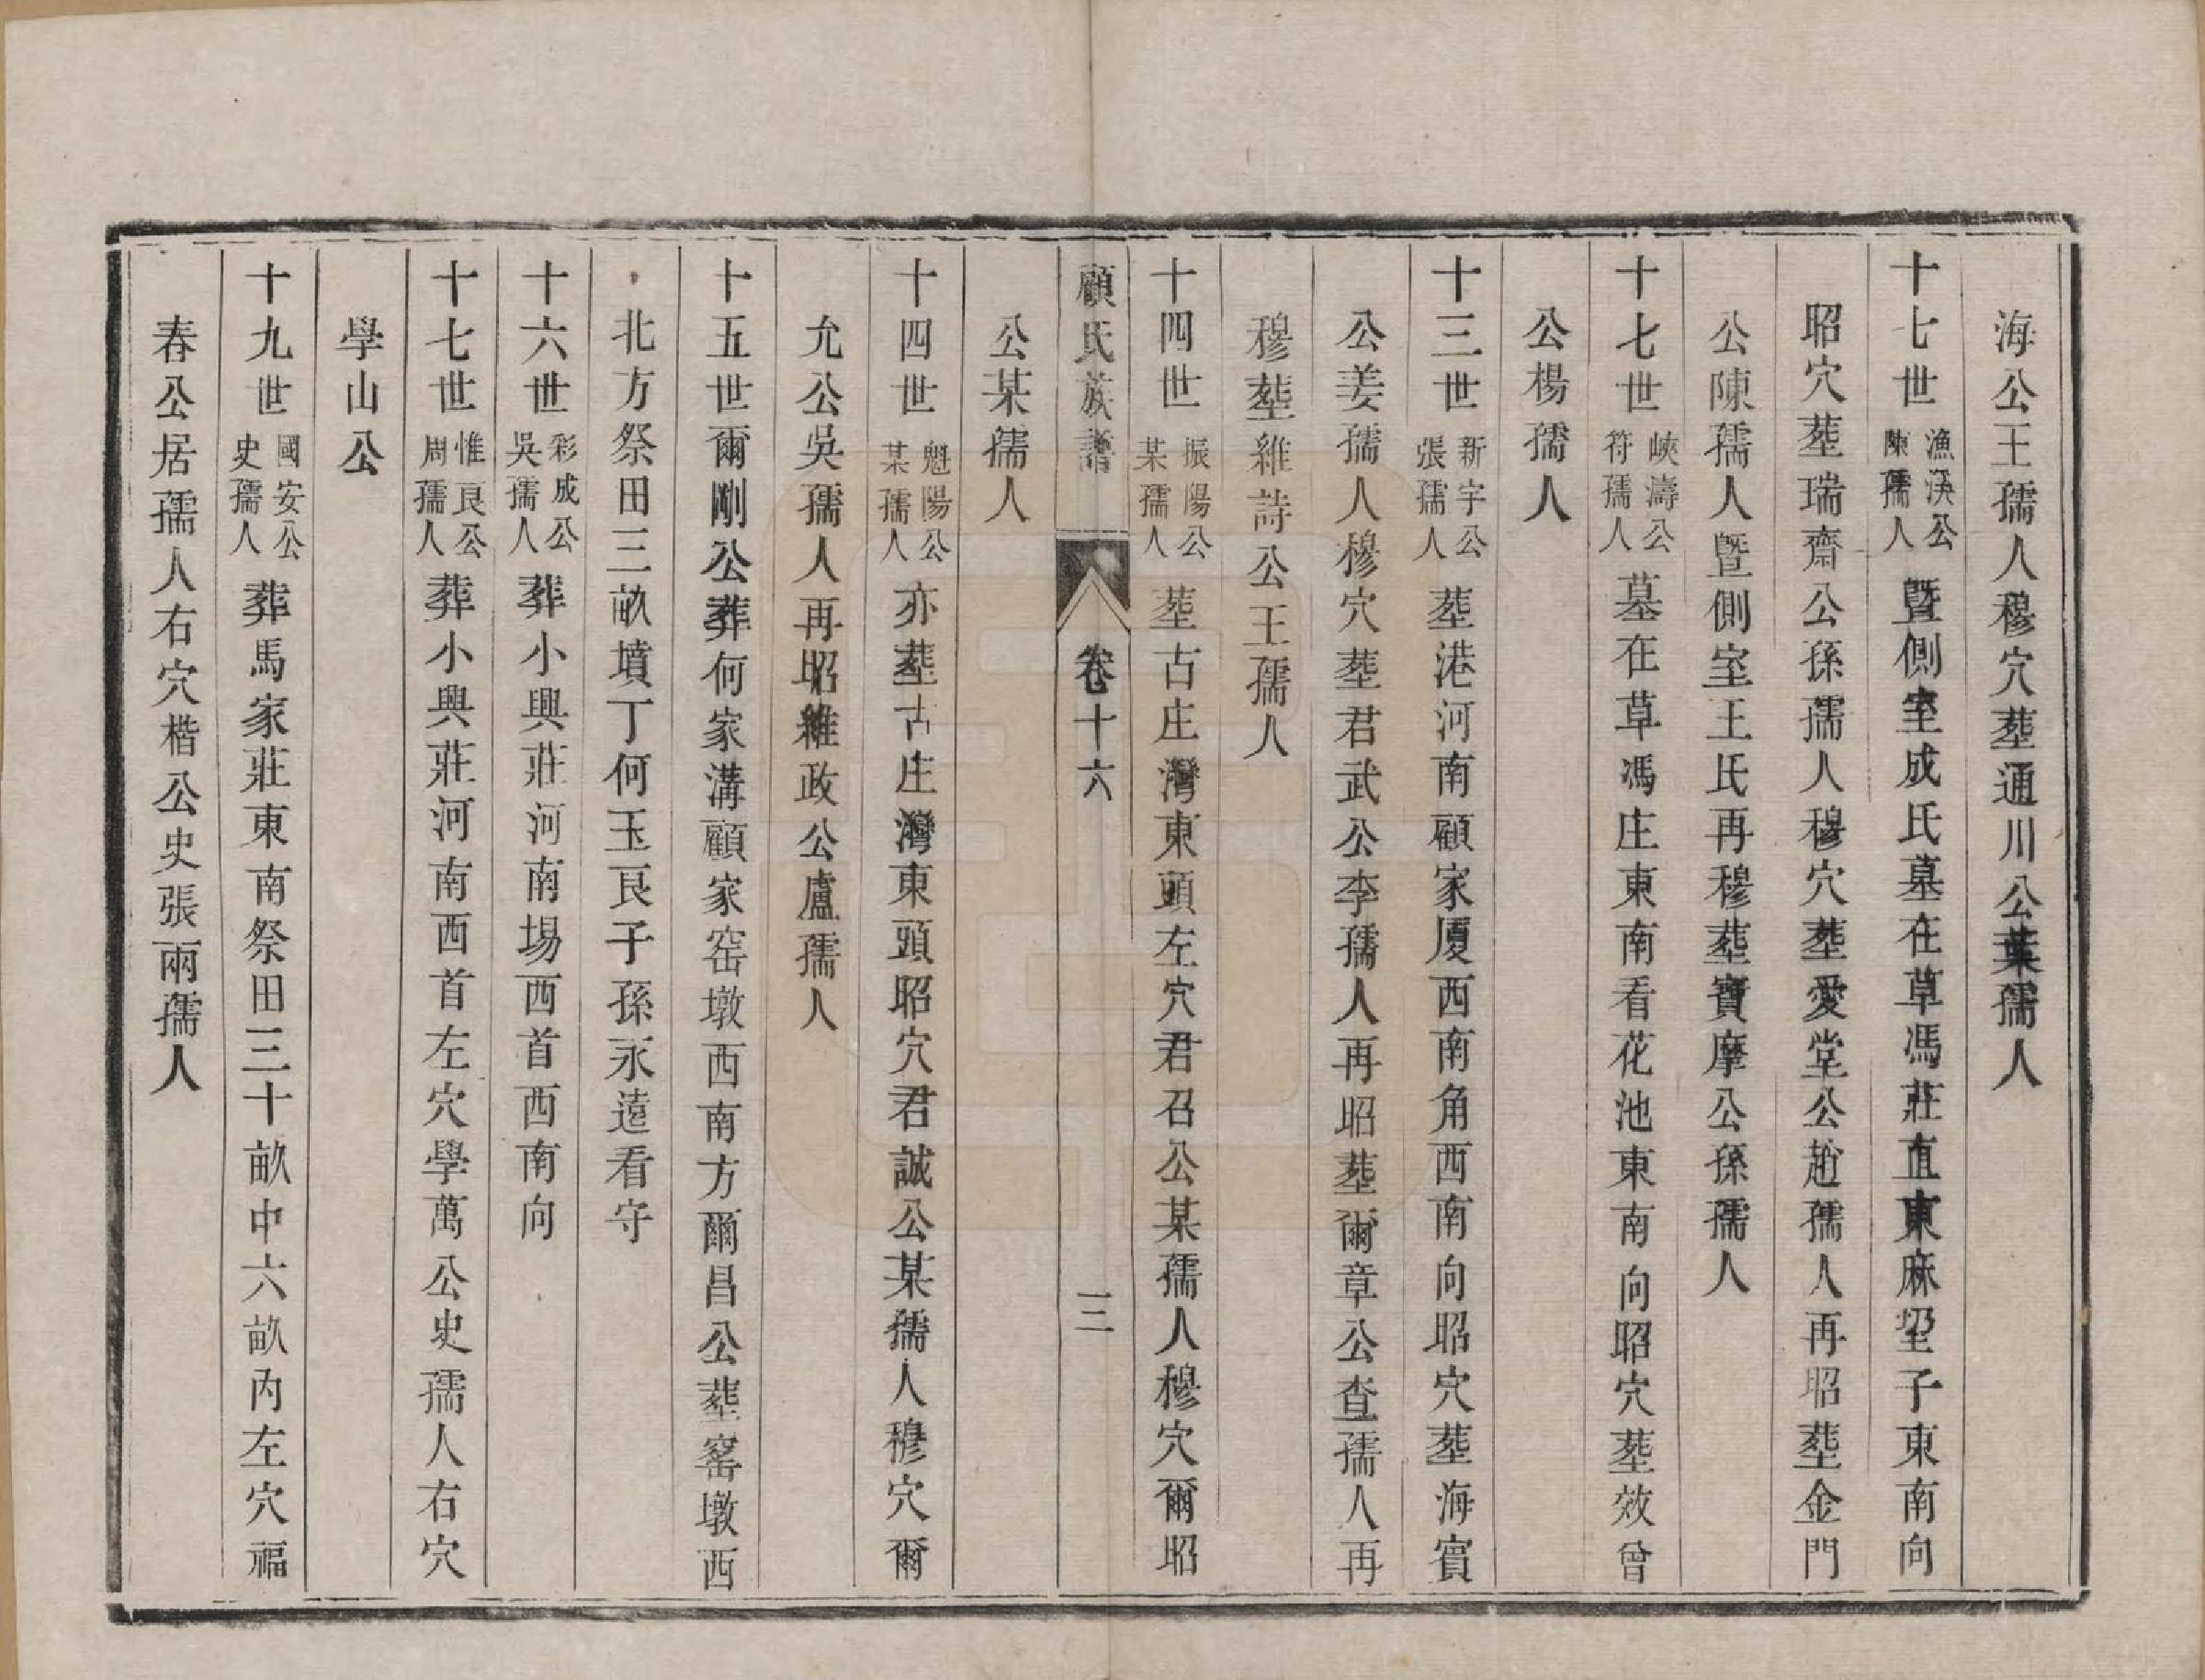 海公王孺人穆穴塟通川公葉孺人
十七世漁溪公陳孺人曁側室成氏墓在草馮莊直東麻埕子東南向
昭穴塟瑞齋公孫孺人穆穴塟愛堂公趙孺人再昭塟金門
公陳孺人曁側室王氏再穆塟寶摩公孫孺人
十七世峽濤公符孺人墓在草馮庄東南看花池東南向昭穴塟效曾
公楊孺人
十三世新宇公張孺人塟港河南顧家厦西南角西南向昭穴塟海賓
公姜孺人穆穴塟君武公李孺人再昭塟爾章公查孺人再
穆塟維詩公王孺人
十四世振陽公某孺人塟古庄灣東頭左穴君召公某孺人穆穴爾昭
顧氏族譜 卷十六 三
公某孺人
十四世魁陽公某孺人亦塟古庄灣東頭昭穴君誠公某孺人穆穴爾
允公吳孺人再昭維政公盧孺人
十五世爾剛公葬何家溝顧家窑墩西南方爾昌公塟窰墩西
北方祭田三畝墳丁何玉艮子孫永遠看守
十六世彩成公吳孺人葬小興莊河南場西首西南向
十七世惟良公周孺人葬小興莊河南西首左穴學萬公史孺人右穴
學山公
十九世國安公史孺人葬馬家莊東南祭田三十畝中六畝內左穴福
春公居孺人右穴楷公史張兩孺人